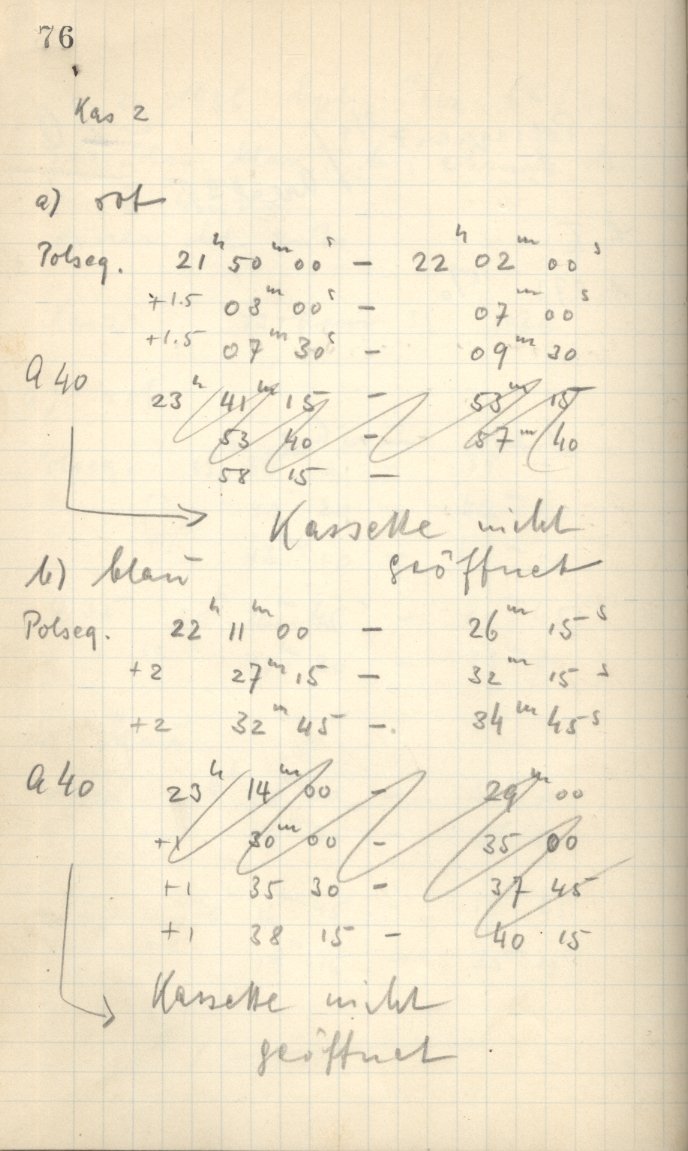 76
Kas 2
a) rot
Polseq. 21h 50m 00s – 22h 02m 00s
+1.5 03m 00s – 07m 00s
+1.5 07m 30s – 09m 30
A 40
23h 41m 15 – 53m 15
53 40 – 57m 40
58 15 –
Kassette nicht
geöffnet
b) blau
Polseq. 22h 11m 00 – 26m 15s
+2 27m 15 – 32m 15s
+2 32m 45 – 34m 45s
A 40 23h 14m 00 – 29m 00
+1 30m 00 – 35 00
+1 35 30 – 37 45
+1 38 15 – 40 15
Kassette nicht
geöffnet